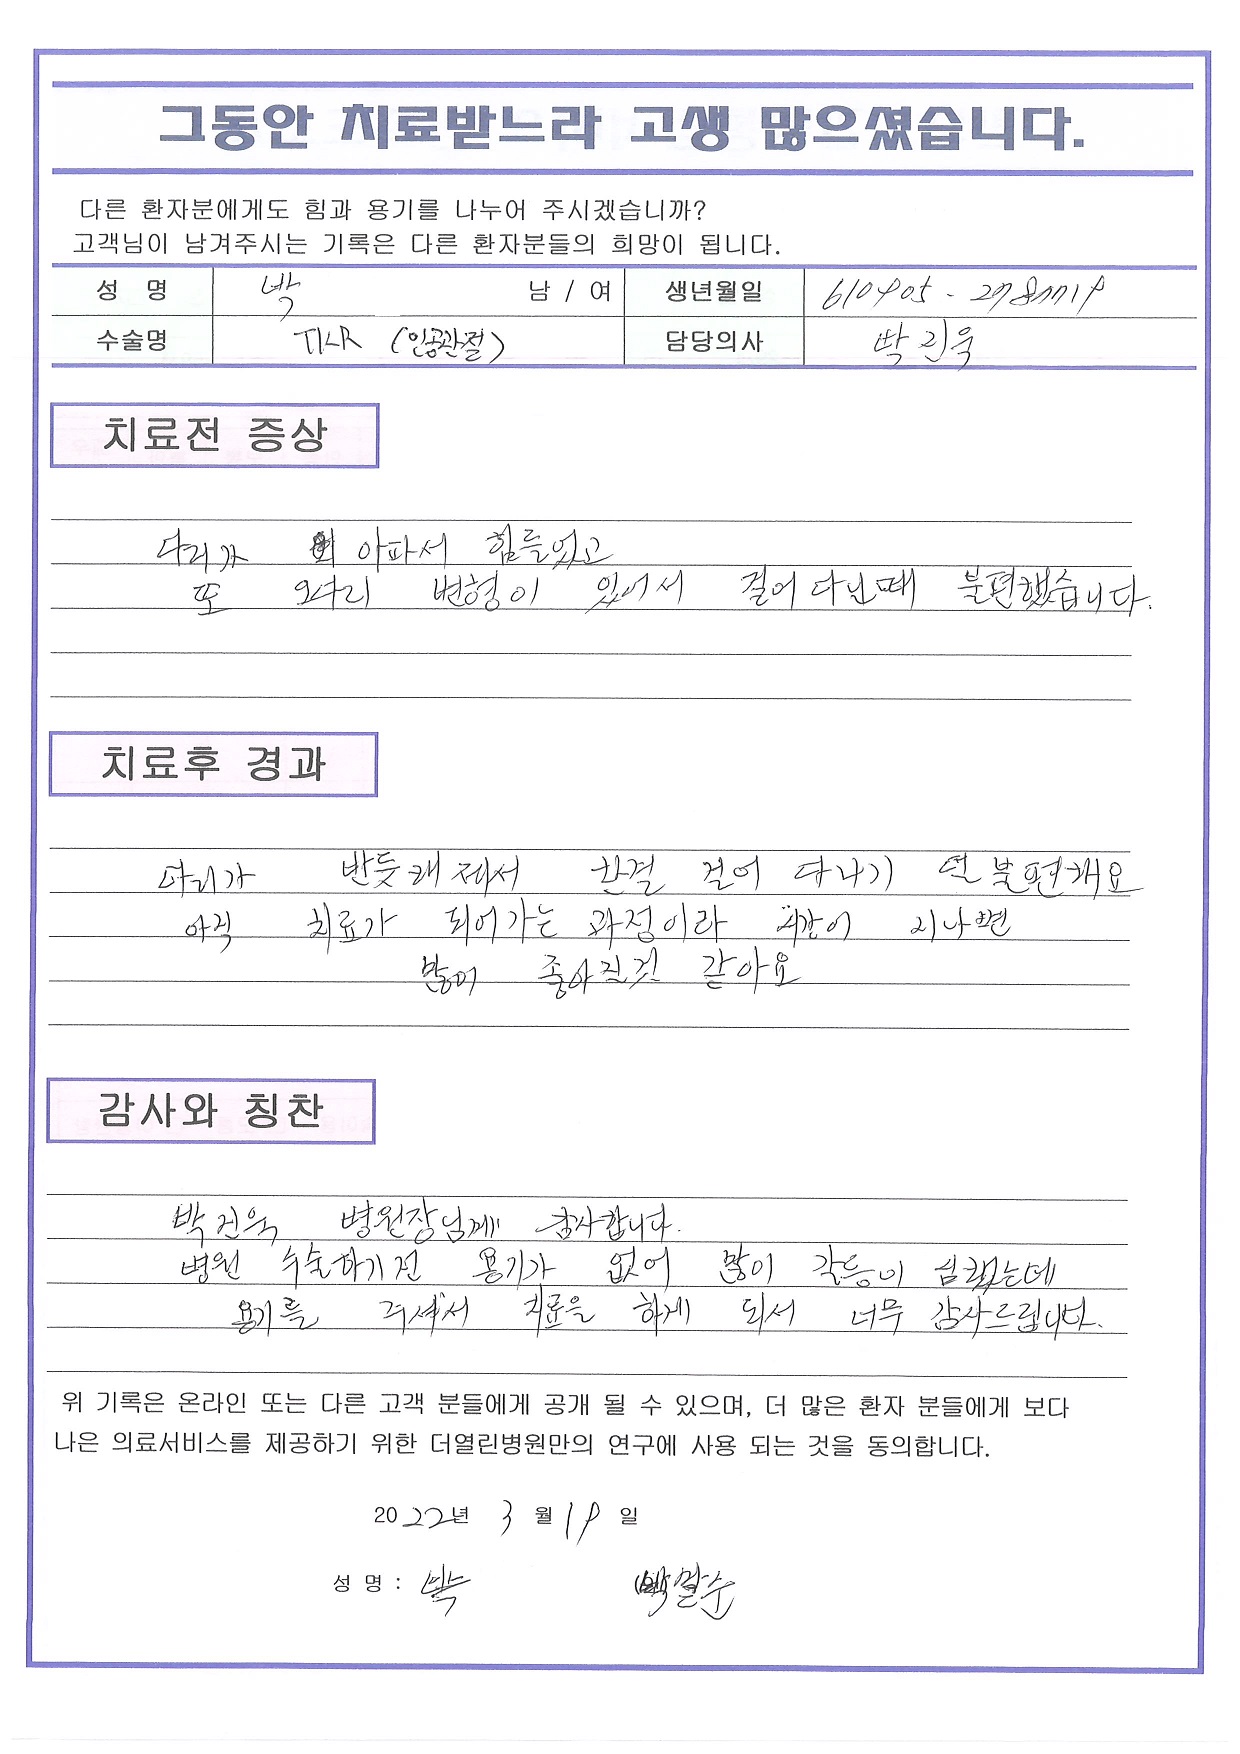 그동안 치료받느라 고생 많으셨습니다.
다른 환자분에게도 힘과 용기를 나누어 주시겠습니까?
고객님이 남겨주시는 기록은 다른 환자분들의 희망이 됩니다.
성 명 박 남 / 여 생년월일
수술명 TKR (인공관절) 담당의사 박진욱
치료전 증상
다리가 아파서 힘들었고
또 오다리 변형이 있어서 걸어 다닌때 불편했습니다.
치료후 경과
다리가 반듯해 져서 한결 걸어 다니기 덜 불편해요
아직 치료가 되어가는 과정이라 시간이 지나면
많이 좋아질것 같아요
감사와 칭찬
박진욱 병원장님께 감사합니다.
병원 수술하기전 용기가 없어 많이 갈등이 심했는데
용기를 주셔서 치료을 하게 되서 너무 감사드립니다.
위 기록은 온라인 또는 다른 고객 분들에게 공개 될 수 있으며, 더 많은 환자 분들에게 보다
나은 의료서비스를 제공하기 위한 더열린병원만의 연구에 사용 되는 것을 동의합니다.
2022년 3월 19일
성 명 : 박